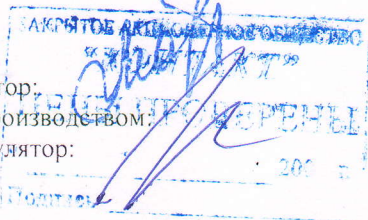 ЗАКРЫТОЕ АКЦИОНЕРНОЕ ОБЩЕСТВО
тор:
ЦЕНЫ ПРОВЕРЕНЫ
оизводством:
лятор:
200 г.
Подпись